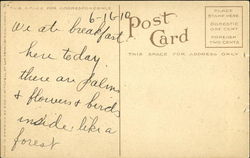 THIS SPACE FOR CORRESPONDENCE
6-16-10
We ate breakfast
here today.
there are Palms
& flowers & birds
inside like a
forest
Post Card
THIS SPACE FOR ADDRESS ONLY
PLACE
STAMP HERE
DOMESTIC
ONE CENT
FOREIGN
TWO CENTS